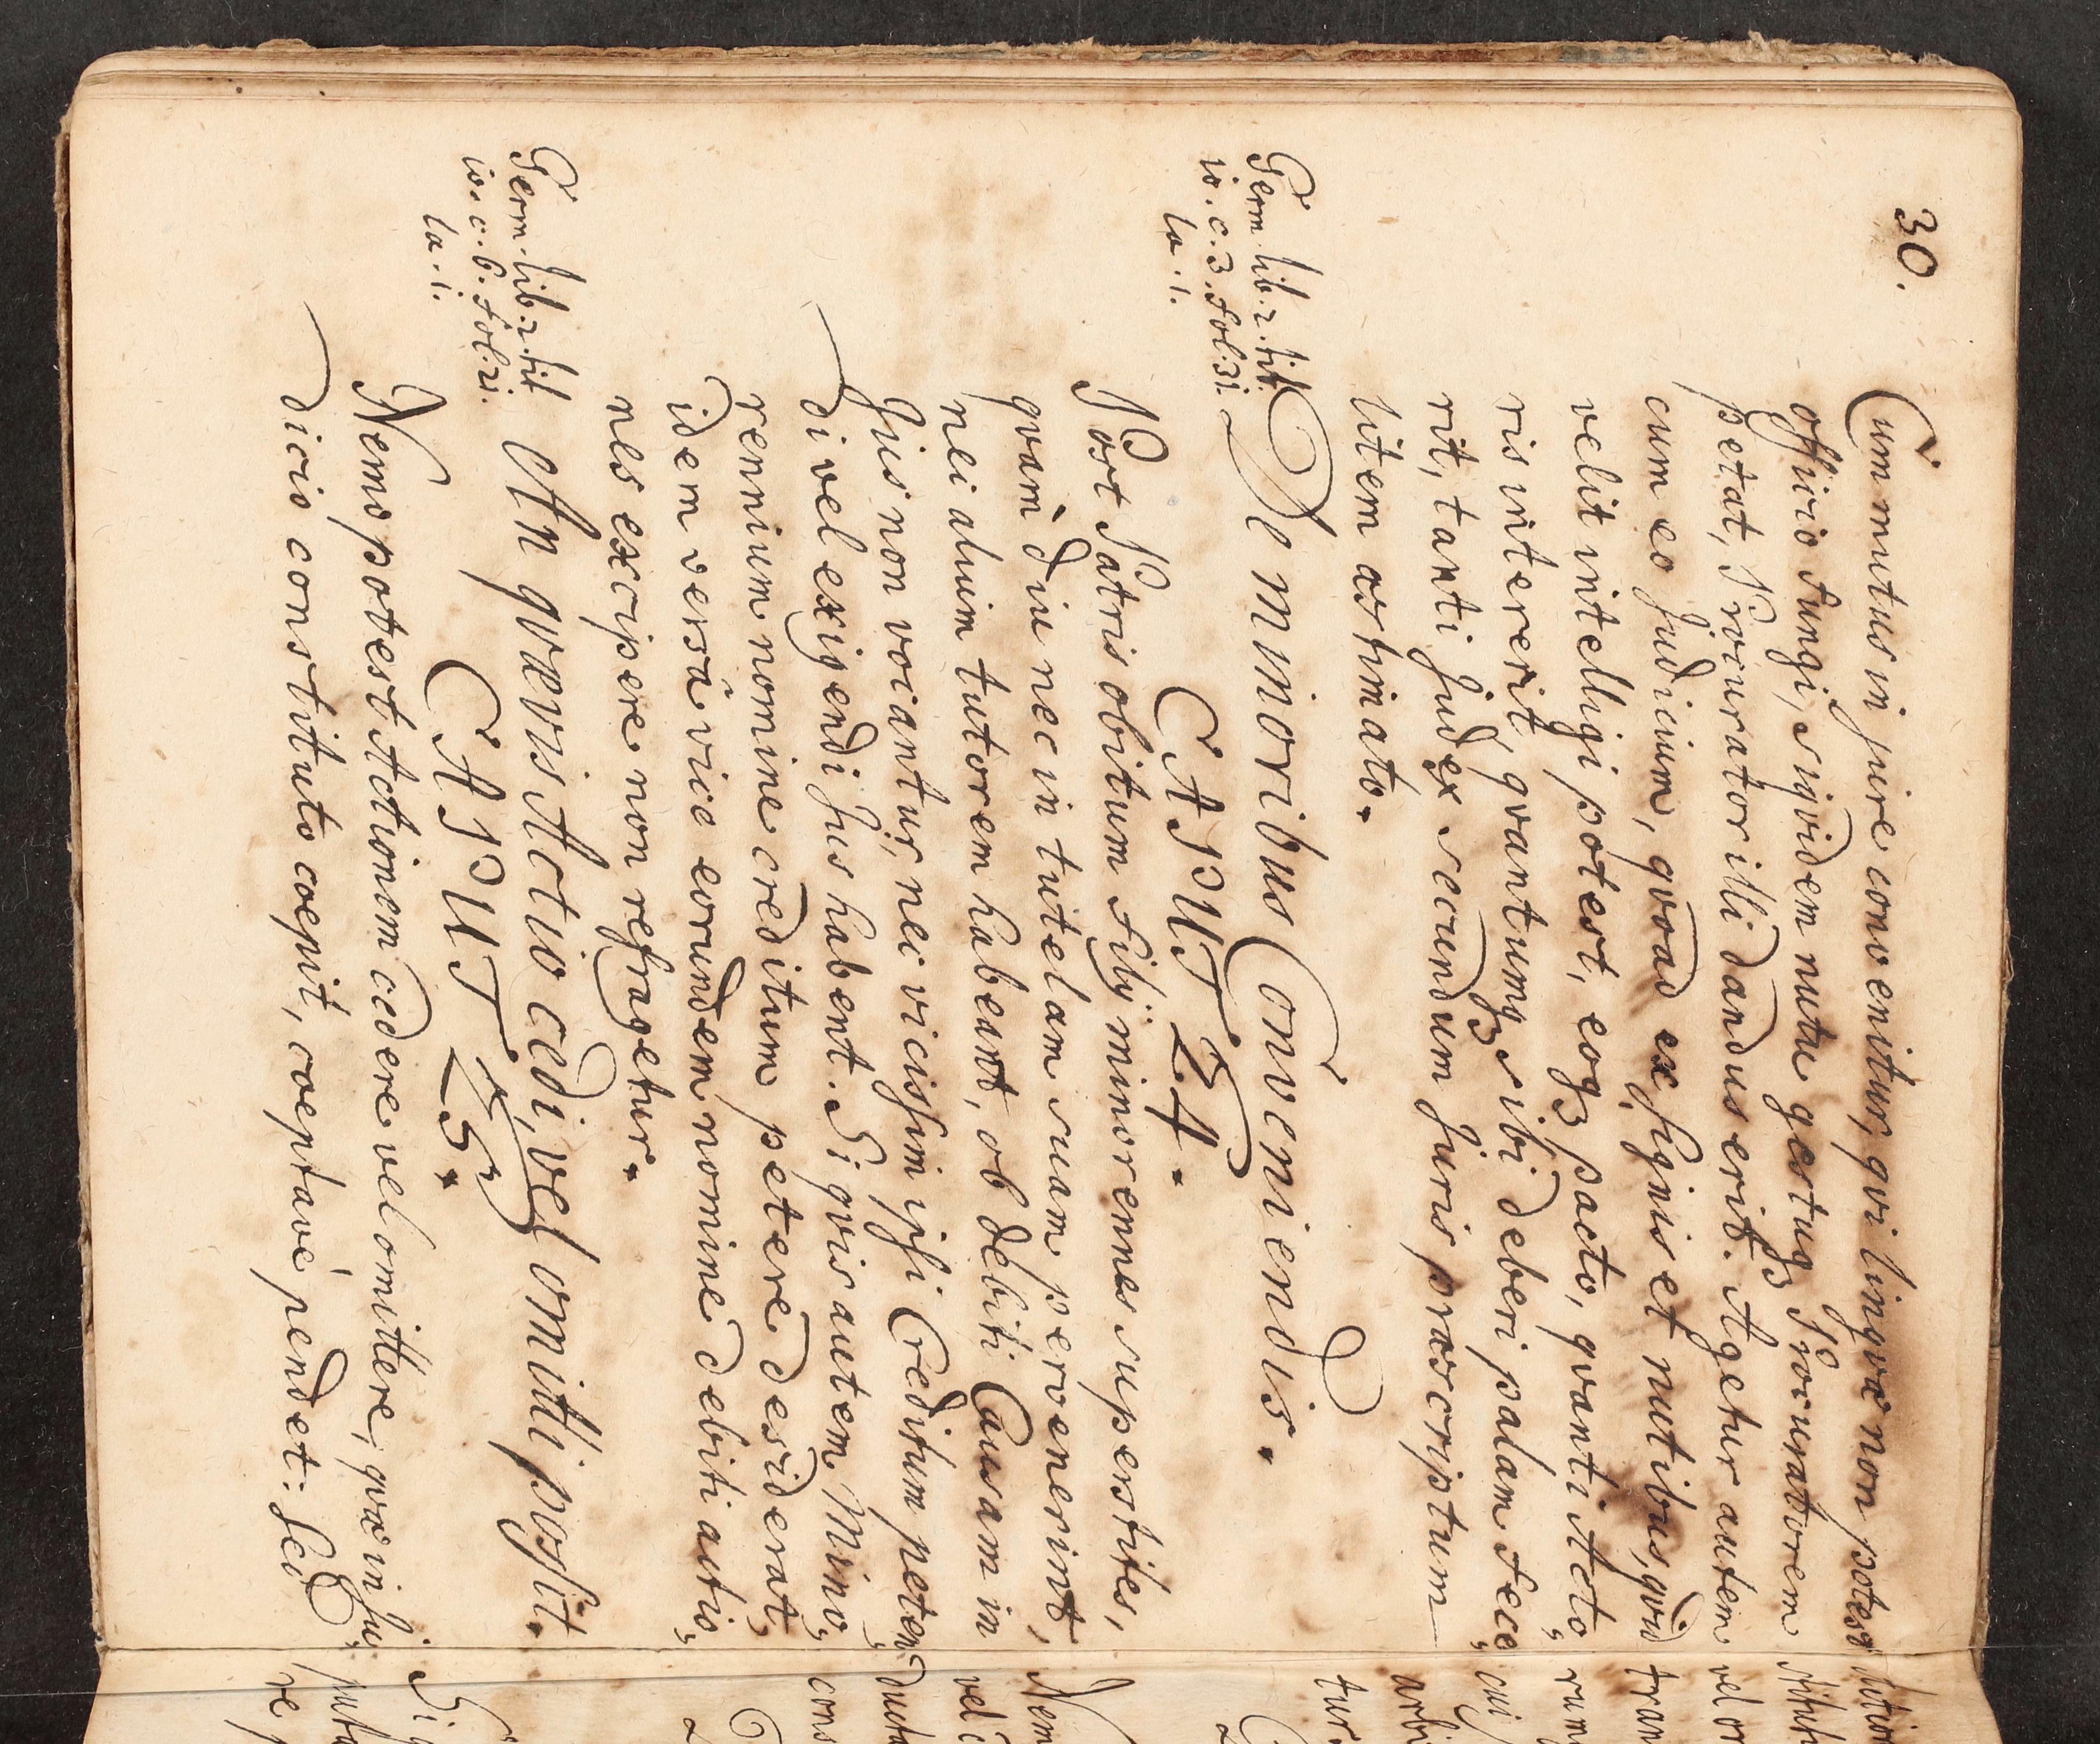 30.
Cum mutus in jure convenitur, qvi lingvæ non potest
officio fungi, siqvidem nutu gestuq3 Procuratorem
petat, Procurator illi dandus erit. Agetur autem
cum eo Judicium, qvoad ex signis et nutibus, qvid
velit intelligi potest, eoq3 pacto, qvanti Acto„
ris intererit, qvantumq3 sibi deberi palam fece„
rit, tanti Judex secundum Juris præscriptum
litem æstimato.
Germ. lib. 2. tit.
10. c. 3. fol. 31.
la. 1.
De minoribus Conveniendis.
CAPUT 24.
Post Patris obitum filij minorennes superstites,
qvam diu nec in tutelam suam pervenerint,
nei alium tutorem habeant, ob debiti Causam in
Jus non vocantur, nec vicissim ipsi Creditum peten„
di vel exigendi Jus habent. Si qvis autem Mino„
rennium nomine creditum petere desiderat,
idem versâ vice eorundem nomine debiti actio„
nes excipere non refragetur.
Germ. lib. 2. tit
10. c. 6. fol. 21.
la. 1.
An qvævis Actio cedi, vel omitti possit.
CAPUT 25.
Nemo potest Actionem cedere vel omittere, qvæ in Ju„
dicio constituto coepit, coeptave, pendet: Sed